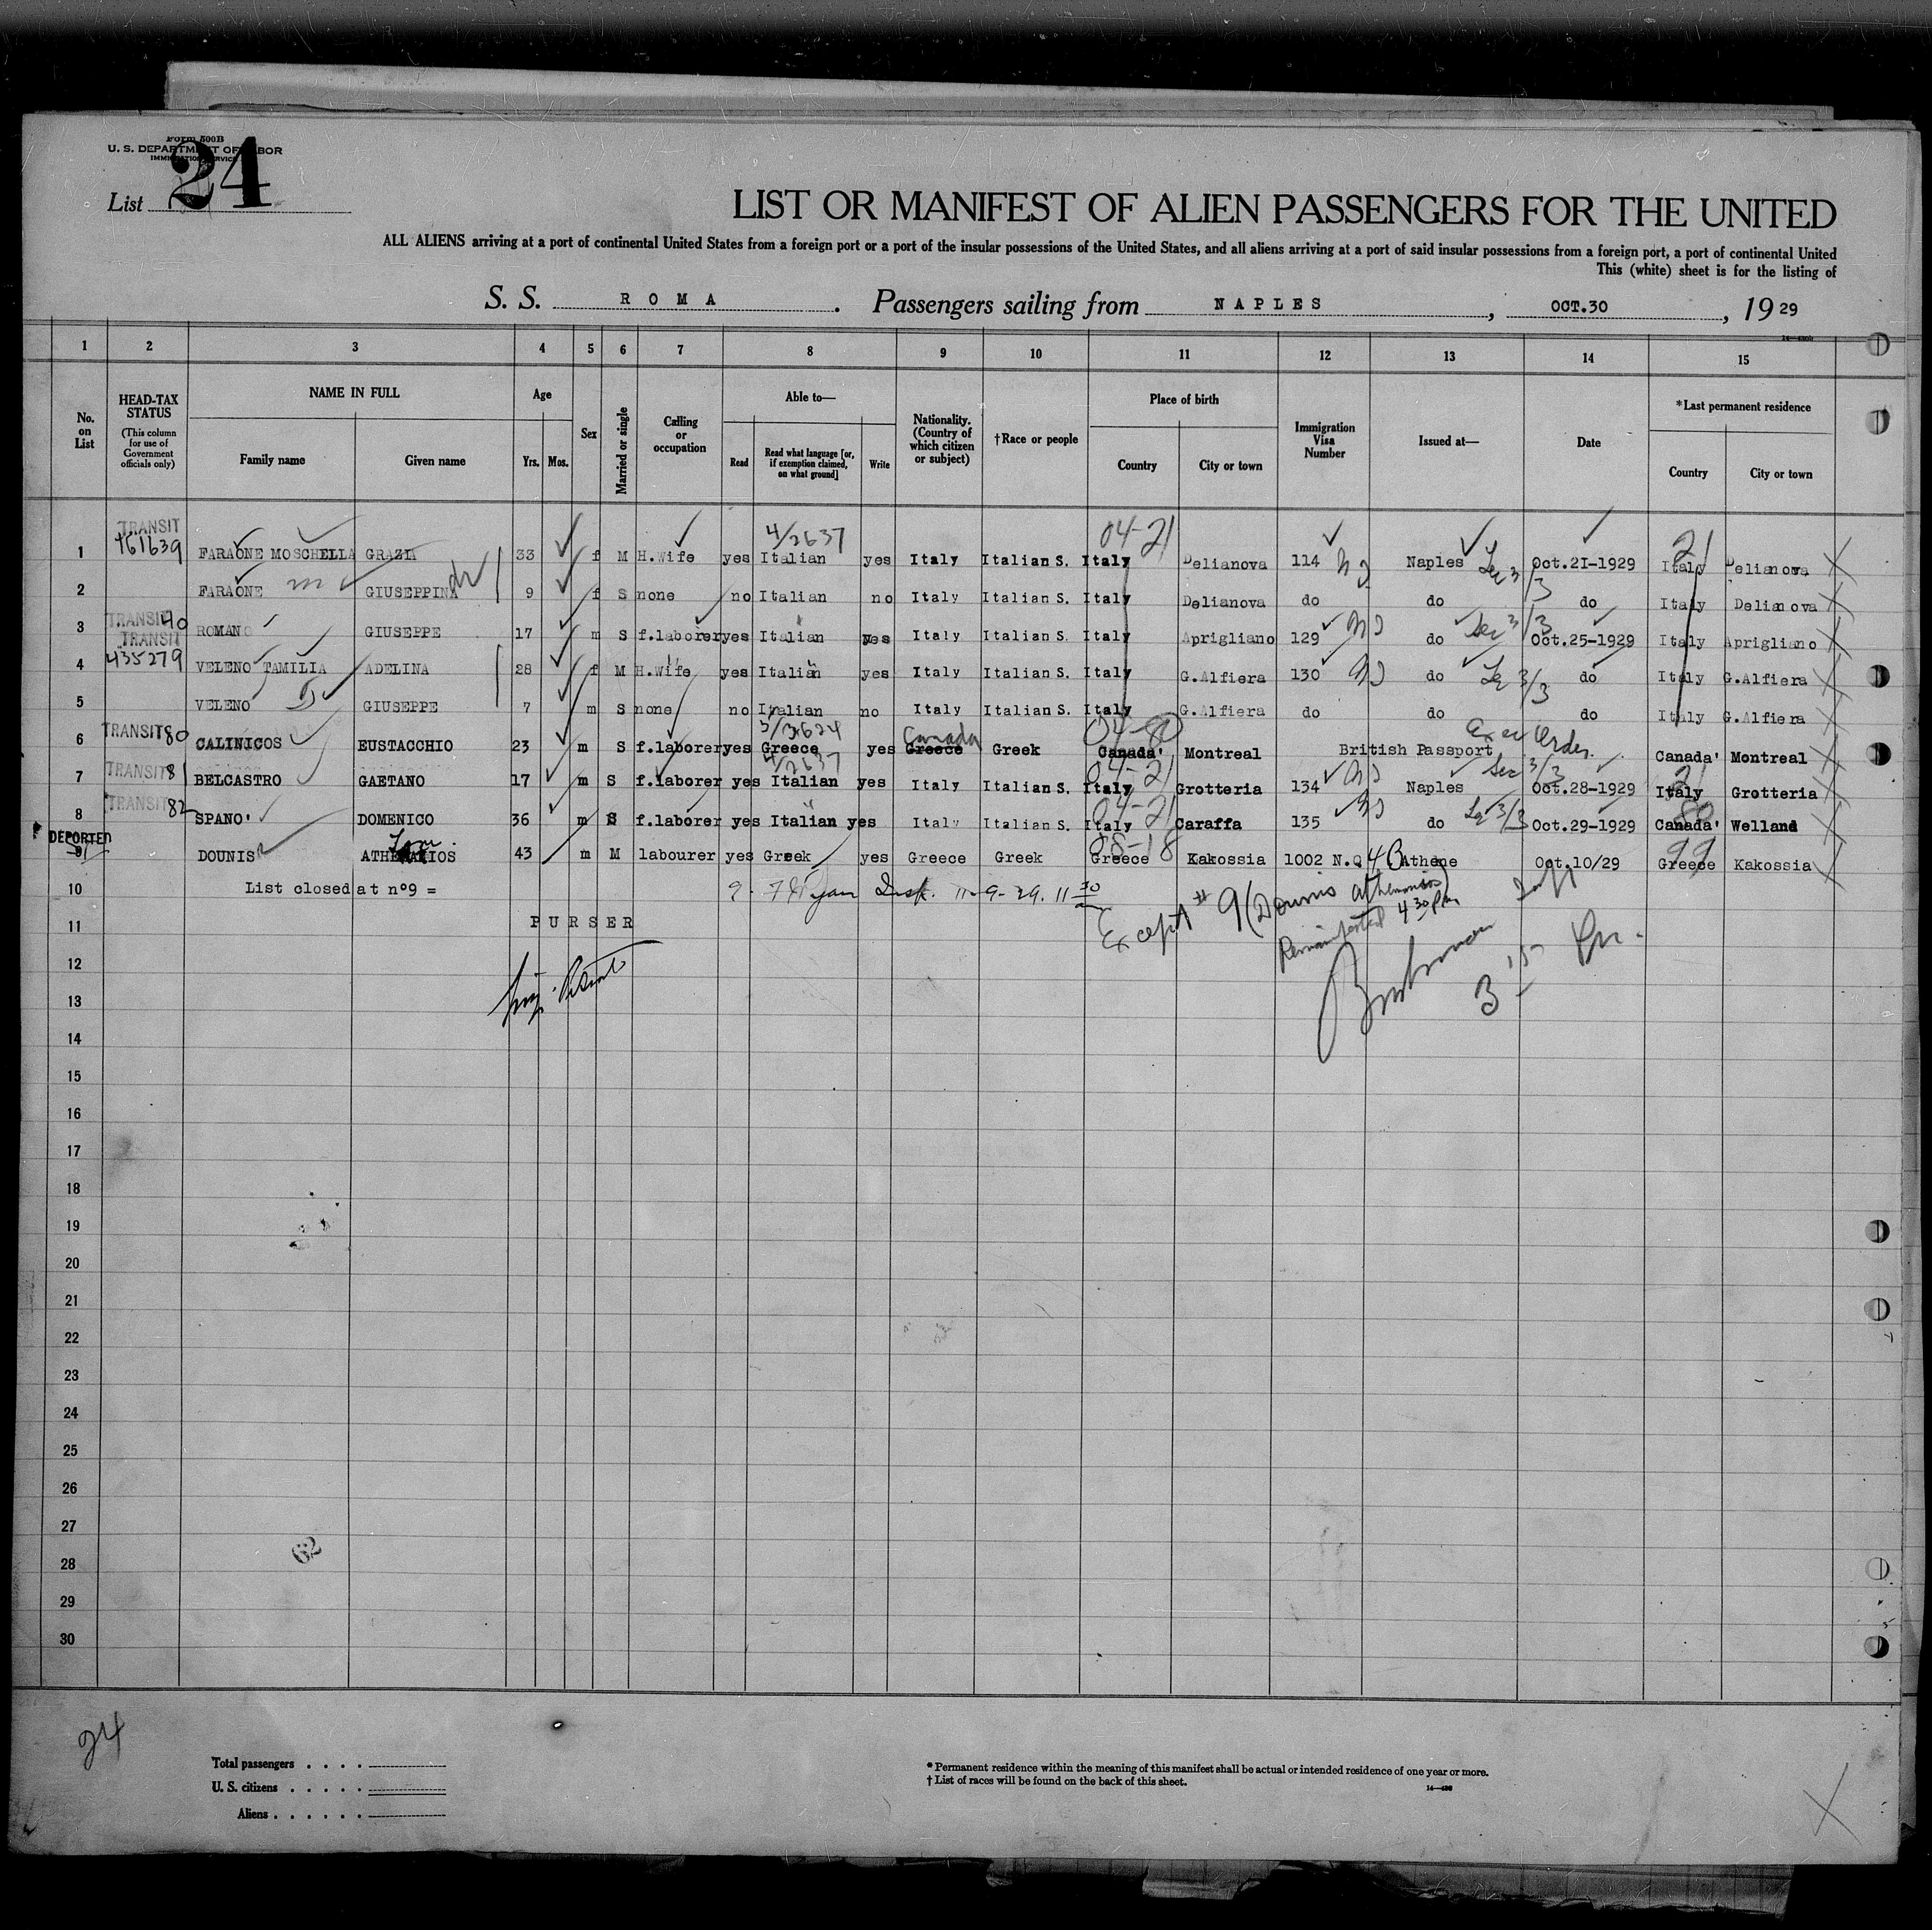 Form 500B
U. S. DEPARTMENT OF LABOR
IMMIGRATION SERVICE
List 24
LIST OR MANIFEST OF ALIEN PASSENGERS FOR THE UNITED
ALL ALIENS arriving at a port of continental United States from a foreign port or a port of the insular possessions of the United States, and all aliens arriving at a port of said insular possessions from a foreign port, a port of continental United
This (white) sheet is for the listing of
S. S. ROMA. Passengers sailing from NAPLES, OCT.30, 1929
1 2 3 4 5 6 7 8 9 10 11 12 13 14 15
No. on List
HEAD-TAX STATUS (This column for use of Government officials only)
NAME IN FULL Family name Given name
Age Yrs. Mos.
Sex
Married or single
Calling or occupation
Able to— Read Read what language [or, if exemption claimed, on what ground] Write
Nationality. (Country of which citizen or subject)
†Race or people
Place of birth Country City or town
Immigration Visa Number
Issued at—
Date
*Last permanent residence Country City or town
TRANSIT 4/2637 04-21 21
1 161639 FARAONE MOSCHELLA GRAZIA 33 f M H.Wife yes Italian yes Italy Italian S. Italy Delianova 114 Naples Oct.21-1929 Italy Delianova
2 FARAONE GIUSEPPINA 9 f S none no Italian no Italy Italian S. Italy Delianova do do do Italy Delianova
3 TRANSIT 40 ROMANO GIUSEPPE 17 m S f.laborer yes Italian yes Italy Italian S. Italy Aprigliano 129 do Sec 3/3 Oct.25-1929 Italy Aprigliano
TRANSIT
4 435279 VELENO TAMILIA ADELINA 28 f M H.Wife yes Italian yes Italy Italian S. Italy G.Alfiera 130 do do Italy G.Alfiera
5 VELENO GIUSEPPE 7 m S none no Italian no Italy Italian S. Italy G.Alfiera do do do Italy G.Alfiera
Canada Exec Order.
6 TRANSIT 80 CALINICOS EUSTACCHIO 23 m S f.laborer yes Greece yes Greece Greek Canada' Montreal British Passport Canada' Montreal
4/2637 04-21 Sec 3/3 21
7 TRANSIT 81 BELCASTRO GAETANO 17 m S f.laborer yes Italian yes Italy Italian S. Italy Grotteria 134 Naples Oct.28-1929 Italy Grotteria
04-21 80
8 TRANSIT 82 SPANO' DOMENICO 36 m S f.laborer yes Italian yes Italy Italian S. Italy Caraffa 135 do Oct.29-1929 Canada' Welland
DEPORTED 99
9 DOUNIS 43 m M labourer yes Greek yes Greece Greek Greece Kakossia 1002 N.Q Athene Oct.10/29 Greece Kakossia
10 List closed at n°9 = 9- Ryan Insp. 11-9-29. 11 30
Except #9 (Dounis Athenasios)
Remanifested 4 30 Pm
11 PURSER
12
13
14
15
16
17
18
19
20
21
22
23
24
25
26
27
28
62
29
30
24
Total passengers . . . .
U. S. citizens . . . . .
Aliens . . . . . .
* Permanent residence within the meaning of this manifest shall be actual or intended residence of one year or more.
† List of races will be found on the back of this sheet.